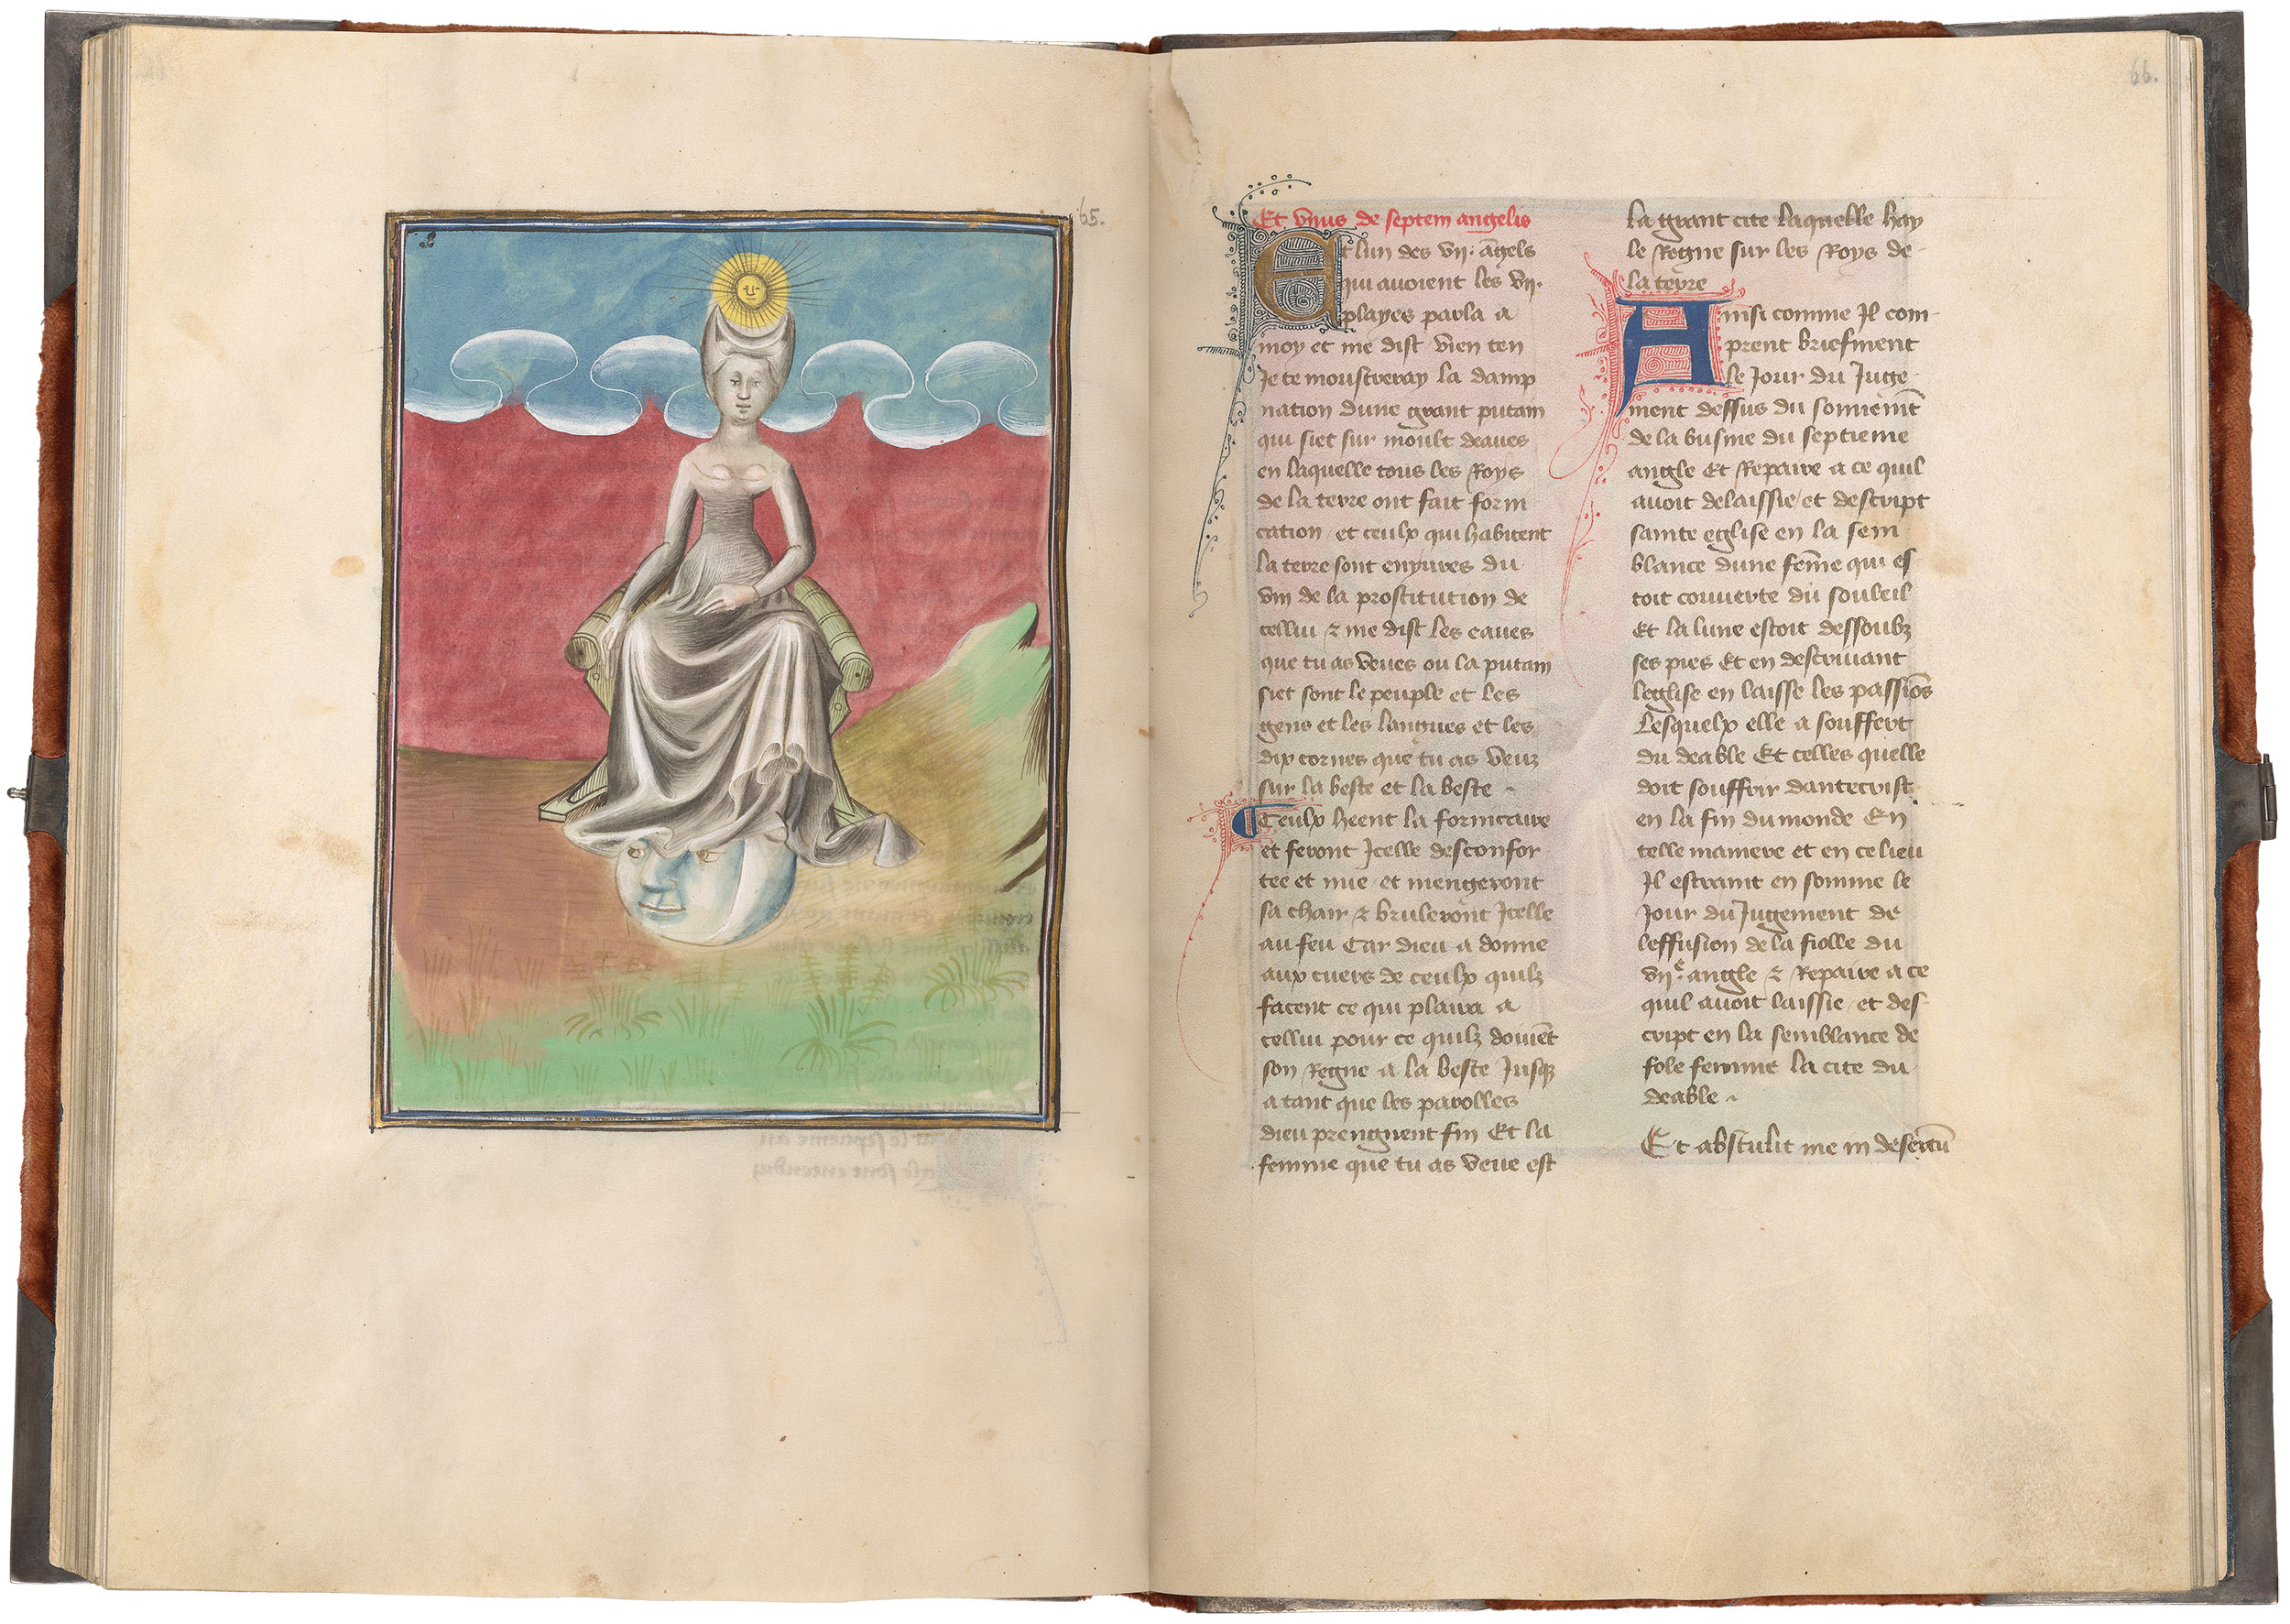 65.
66.
Et vnus de septem angelis
Et lun des vij. āgels
qui auoient les vij.
playes parla a
moy et me dist vien ten
Je te moustreray la damp
nation dune grant putain
qui siet sur moult deaues
en laquelle tous les Roys
de la terre ont fait forni
cation et ceulx qui habitent
la terre sont enyures du
vin de la prostitution de
cellui & me dist les eaues
que tu as veues ou la putain
siet sont le peuple et les
gens et les langues et les
dix cornes que tu as veuz
sur la beste et la beste
Ceulx heent la fornicaire
et feront Icelle desconfor
tee et nue et mengeront
sa chair & bruleront Icelle
au feu Car dieu a donne
aux cuers de ceulx quilz
facent ce qui plaira a
cellui pour ce quilz doinēt
son Regne a la beste Jusq
a tant que les parolles
dieu prengnent fin Et la
femme que tu as veue est
la grant cite laquelle hay
le Regne sur les Roys de
la terre
Ainsi comme Il com
prent briefment
le Jour du Juge
ment dessus du sonnemēt
de la busine du septieme
angle Et Repaire a ce quil
auoit delaissie et descript
sainte eglise en la sem
blance dune fēme qui es
toit couuerte du souleil
Et la lune estoit dessoubz
ses pies Et en descriuant
leglise en laisse les passiōs
Lesquelx elle a souffert
du deable Et celles quelle
doit souffrir dantecrist
en la fin du monde En
telle maniere et en ce lieu
Il estraint en somme le
Jour du Jugement de
leffusion de la fiolle du
vij.e angle & Repaire a ce
quil auoit laissie et des
cript en la semblance de
fole femme la cite du
deable
Et abstulit me in desertū